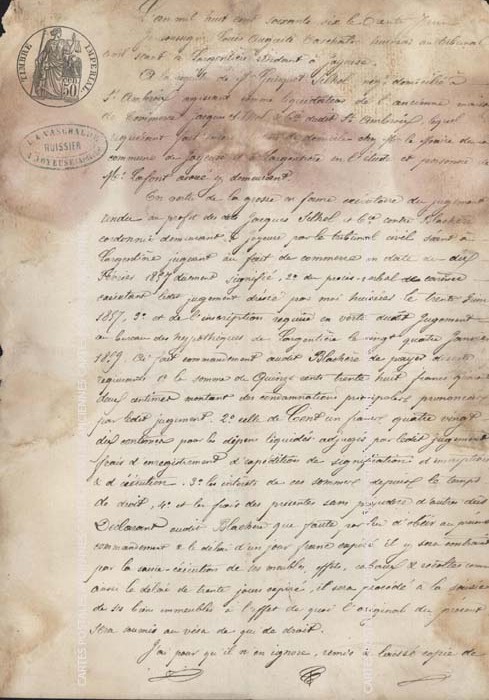 TIMBRE IMPERIAL
50
HUISSIER
L'an mil huit cent soixante six le trente Juin
huissier au tribunal
civil séant à Largentière résidant à Joyeuse
A la requête de Mr Jacques Silhol domicilié à
St Ambroix agissant comme liquidateur de l'ancienne maison
de Commerce Jacques Silhol & Cie dudit St Ambroix, lequel
requérant fait de domicile chez Mr le Maire de
commune de Joyeuse et à Largentière en l'étude et personne de
Me Lafont avoué y demeurant
En vertu de la grosse en forme exécutoire du jugement
rendu au profit de Jacques Silhol & Cie contre Blachère
cordonnier demeurant à Joyeuse par le tribunal civil séant à
Largentière jugeant au fait de commerce en date du dix
Février 1857 dûment signifié, 2° du procès-verbal de carence
ledit jugement par moi huissier le trente Juin
1857, 3° et de l'inscription requise en vertu dudit Jugement
au bureau des hypothèques de Largentière le vingt quatre Janvier
1859. Ai fait commandement audit Blachère de payer
requérants 1° la somme de Quinze cents trente huit francs
deux centimes montant des condamnations principales prononcées
par ledit jugement. 2° celle de Cent un francs quatre vingt
dix centimes pour les dépens liquidés adjugés par ledit jugement
frais d'enregistrement d'expédition de signification d'inscription
& d'exécution. 3° les intérêts de ces sommes depuis le temps
de droit, 4° et les frais des présentes sans préjudice d'autres dus
Déclarant audit Blachère que faute par lui d'obéir au présent
commandement & le délai d'un jour franc expiré il y sera contraint
par la saisie-exécution de ses meubles, effets, cabaux & récoltes comme
aussi le délai de trente jours expiré, il sera procédé à la saisie
de ses biens immeubles à l'effet de quoi l'original du présent
sera soumis au visa de qui de droit.
J'ai pour qu'il n'en ignore, remis & laissé copie de
CARTES POSTALES ANCIENNES